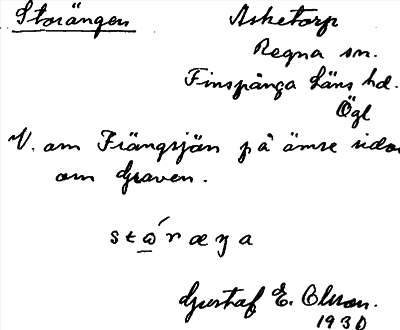 Storängen Asketorp
Regna sn.
Finspånga läns hd.
Ögl
V. om Frängsjön på ömse sidor
om graven.
stώ̲ræŋa
Gustaf E. Olsson.
1930